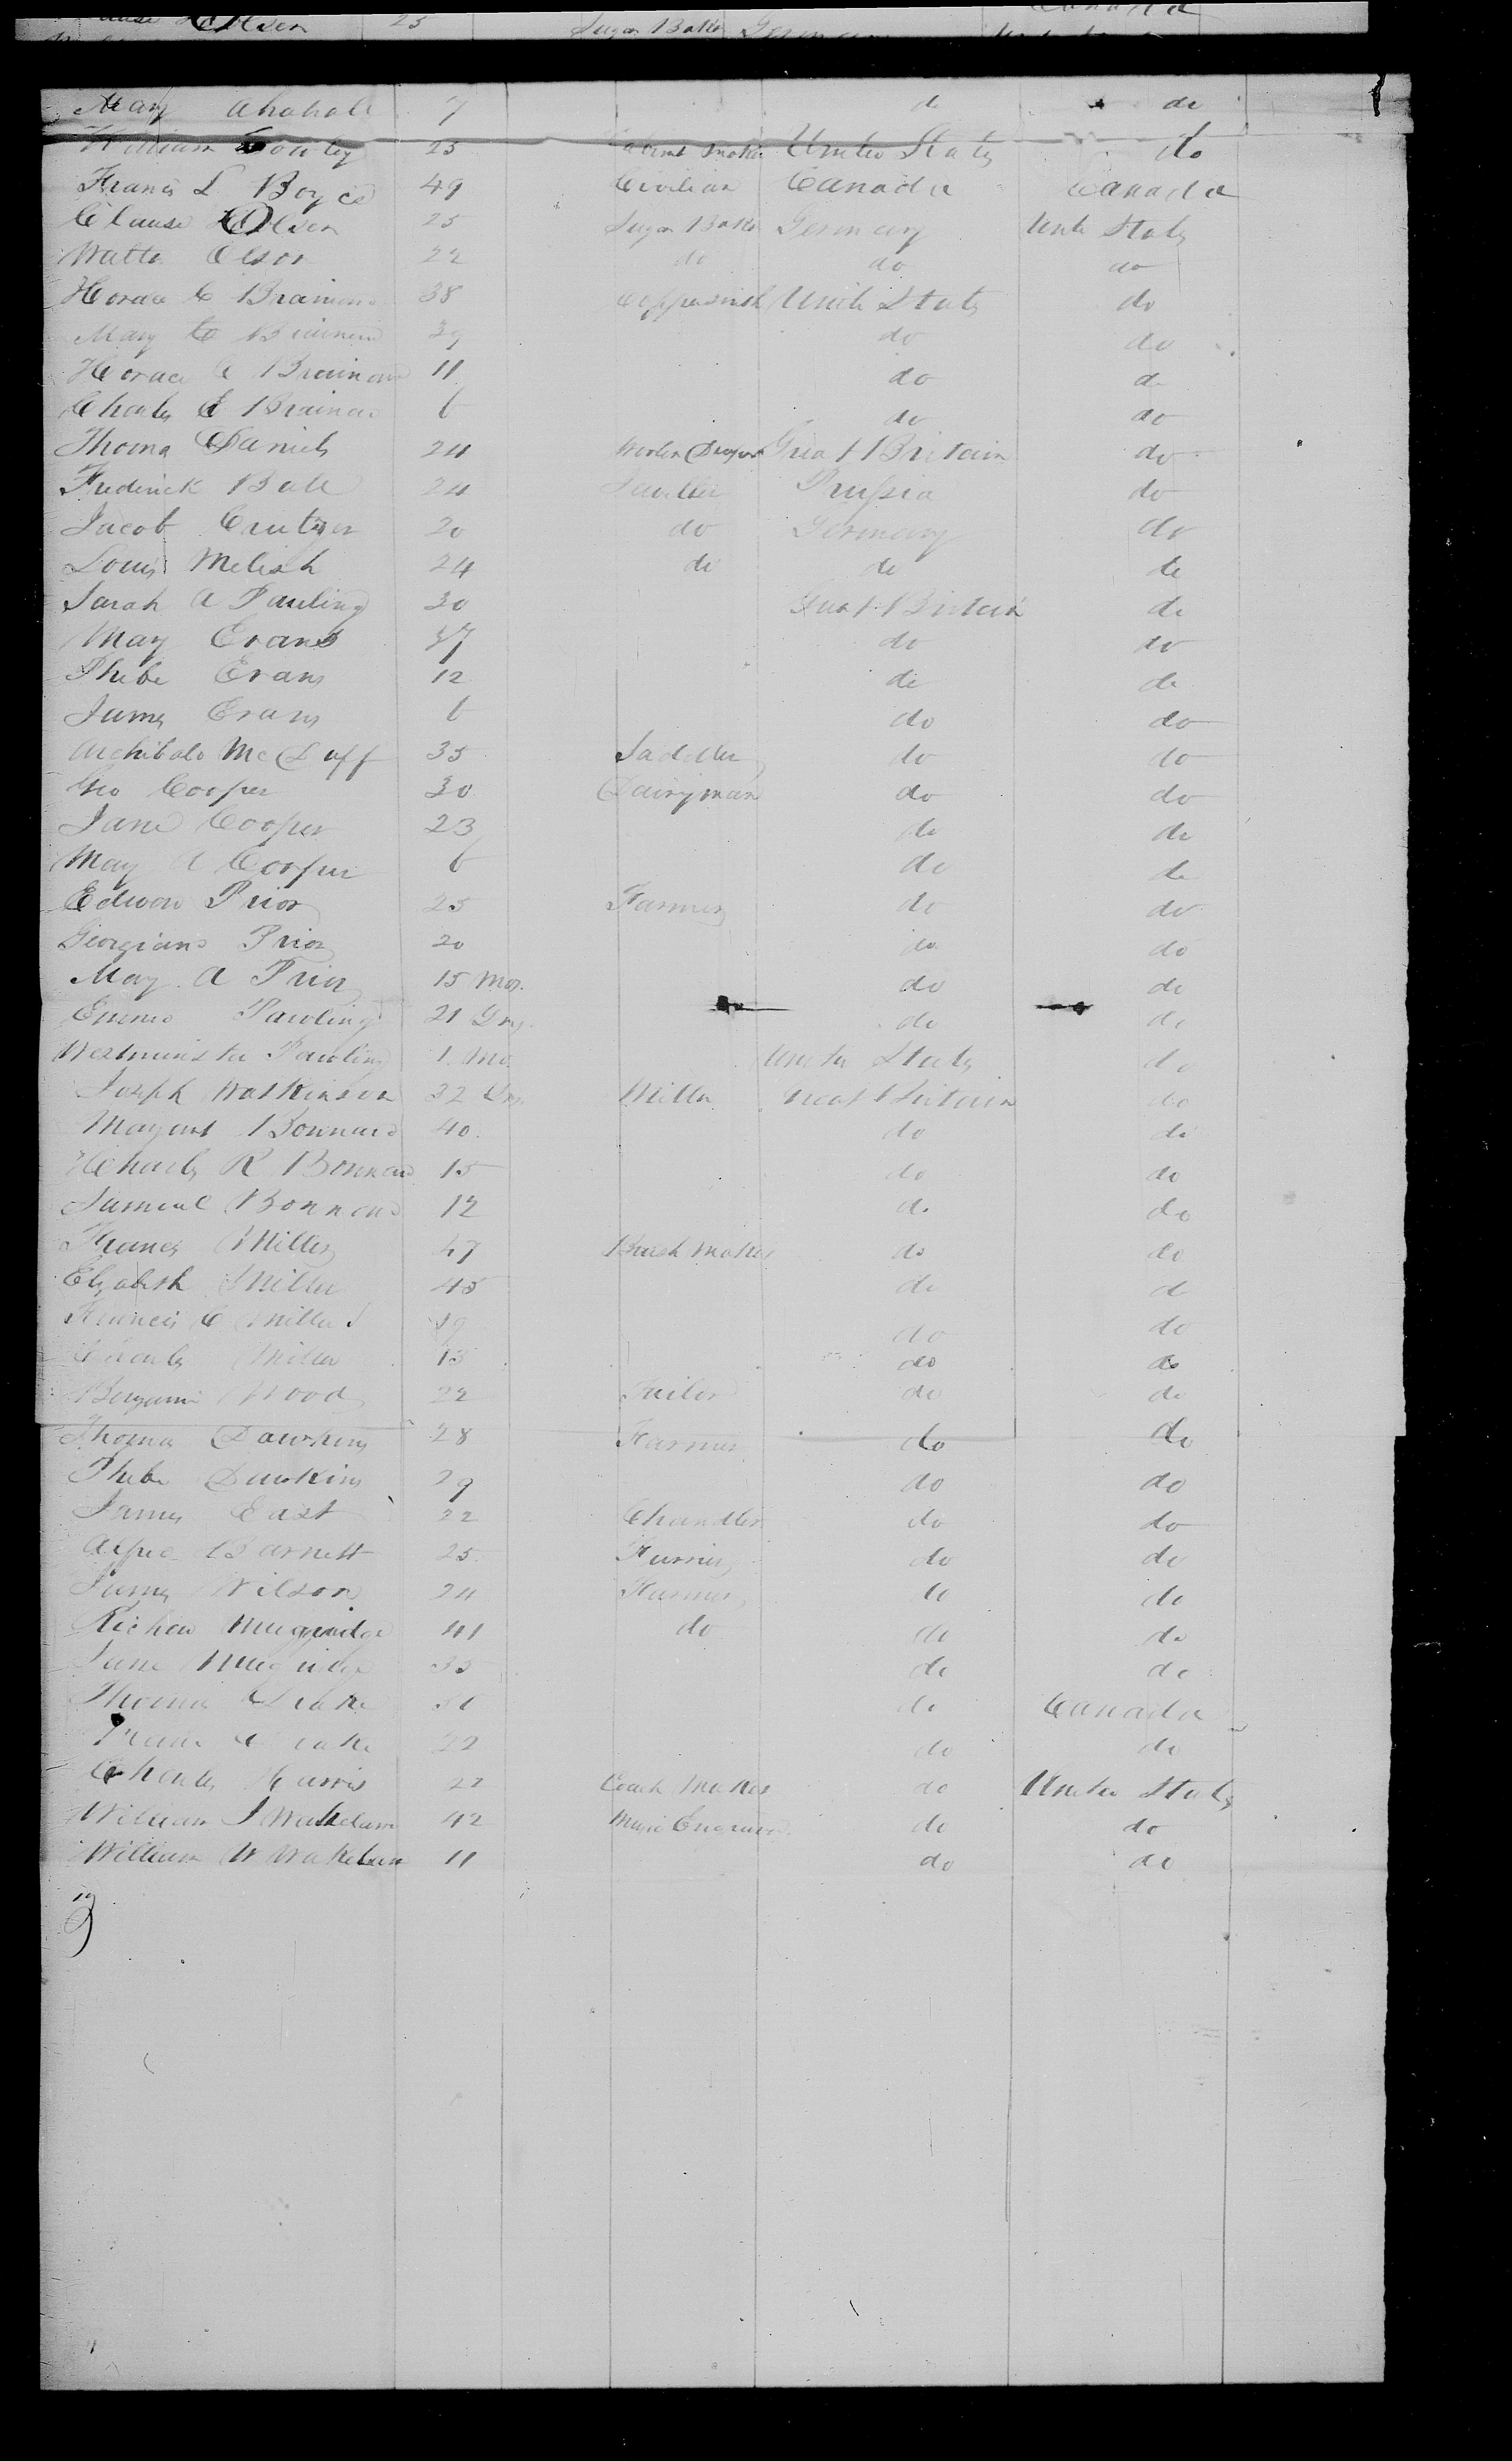 Clause Olsen 25 Sugar Baker Germany
Mary 7 do do
William 25 Cabinet Maker United States do
Francis L Boyce 49 Civilian Canada Canada
Clause Olsen 25 Sugar Baker Germany Unite States
Watta Olson 22 do do do
Horace C Brainard 38 Coppersmith Unite States do
Mary Brainard 39 do do
Horace C Brainard 11 do do
Charles E Brainard 6 do do
Thoma Daniels 24 Woolen Draper Great Britain do
Frederick Ball 24 Prussia do
Jacob 20 do Germany do
Louis Melish 24 do do do
Sarah A Pauling 30 Great Britain do
Mary Evans 37 do do
Phebe Evans 12 do do
James Evans 6 do do
Archibald McDuff 35 Saddler do do
Geo Cooper 30 Dairyman do do
Jane Cooper 23 do do
Mary A Cooper 6 do do
Edward Prior 25 Farmer do do
Georgiana Prior 20 do do
Mary A Prior 15 Mos. do do
Emma Pauling 21 Dys. do do
Westminster Pauling 1 Mo. United States do
Joseph Watkinson 32 Miller Great Britain do
Margaret Bonnard 40 do do
Charles R Bonnard 15 do do
Samuel Bonnard 12 do do
Francis Miller 47 Brush Maker do do
Elizabeth Miller 45 do do
Francis C Miller 19 do do
Charles Miller 13 do do
Benjamin Wood 22 Tailor do do
Thomas Dawkins 28 Farmer do do
Phebe Dawkins 29 do do
James East 22 Chandler do do
Alfred Barnett 25 Furrier do do
James Wilson 24 Farmer do do
Richard Muggridge 41 do do do
Jane Muggridge 35 do do
Thomas Drake do Canada
Drake 22 do do
Charles Harris 22 Coach Maker do United States
William J Wakelam 42 Music Engraver do do
William W Wakelam 11 do do